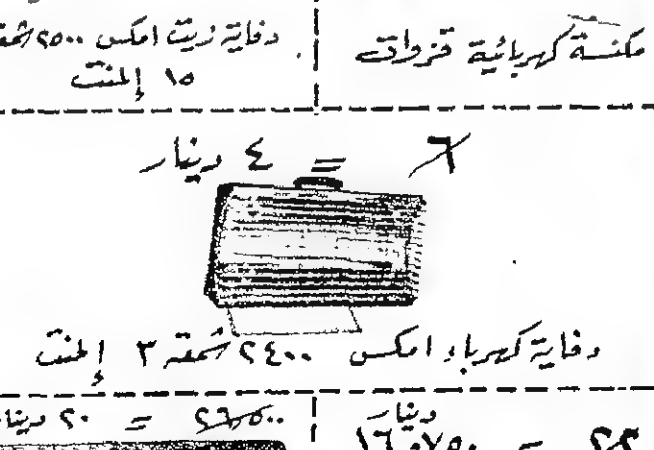 مكنسة كهربائية قزوات
دفاية زيت امكس ٢٥٠٠ شمعة
١٥ إلمنت
٦ = ٤ دينار
دفاية كهرباء امكس ٢٤٠٠ شمعة ٣ إلمنت
٢٣ = ١٦،٧٥٠ دينار
٢٦،٥٠٠ = ٢٠ دينار